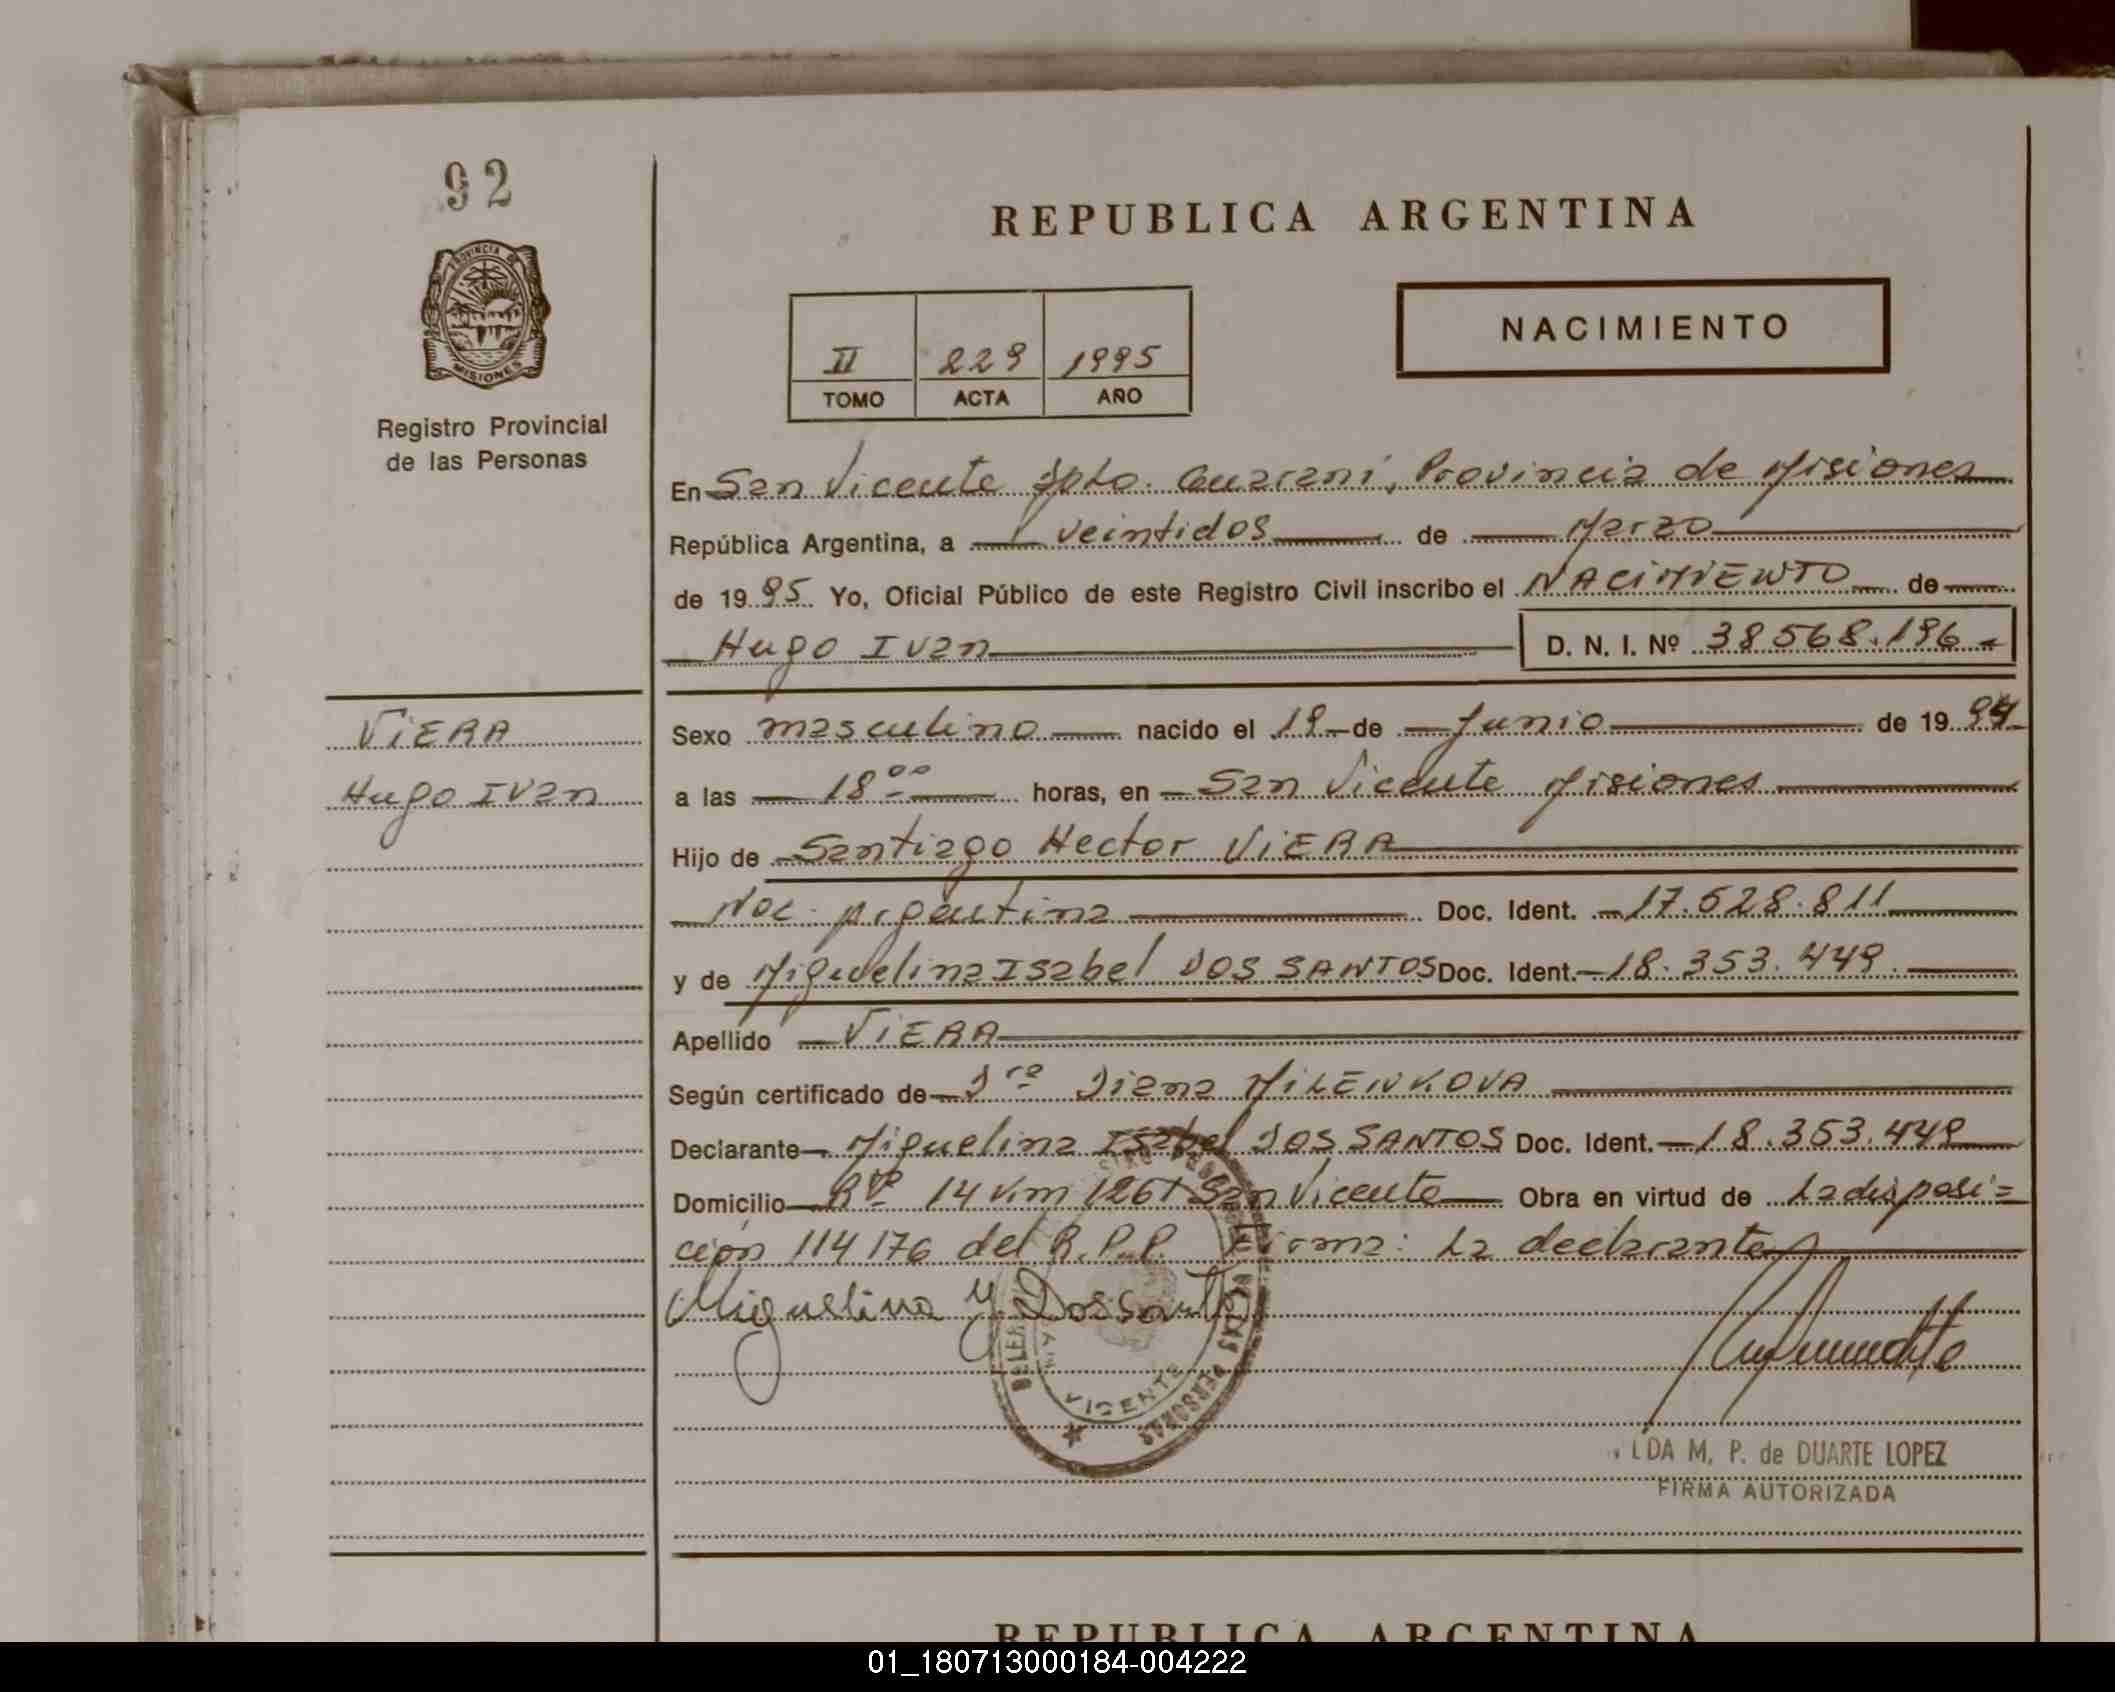 92
REPUBLICA ARGENTINA
PROVINCIA DE
MISIONES
Registro Provincial
de las Personas
II 229 1995
TOMO ACTA AÑO
NACIMIENTO
En San Vicente Dpto. Guaraní, Provincia de Misiones
República Argentina, a veintidos de Marzo
de 1995 Yo, Oficial Público de este Registro Civil inscribo el NACIMIENTO de
Hugo Ivan D. N. I. Nº 38568.196.-
VIERA
Hugo Ivan
Sexo masculino nacido el 19 de Junio de 1994
a las 18ºº horas, en San Vicente Misiones
Hijo de Santiago Hector VIERA
Nac. Argentina Doc. Ident. 17.628.811
y de Miguelina Isabel DOS SANTOS Doc. Ident. 18.353.449.
Apellido VIERA
Según certificado de Dra Diana MILENKOVA
Declarante Miguelina Isabel DOS SANTOS Doc. Ident. 18.353.449
Domicilio 14 Km 1261 San Vicente Obra en virtud de La disposi=
ción 114/76 del R.P.P. Firma: La declarante
Miguelina Y. Dos Santos
VICENTE
PERSONAS
LDA M. P. de DUARTE LOPEZ
FIRMA AUTORIZADA
REPUBLICA ARGENTINA
01_180713000184-004222